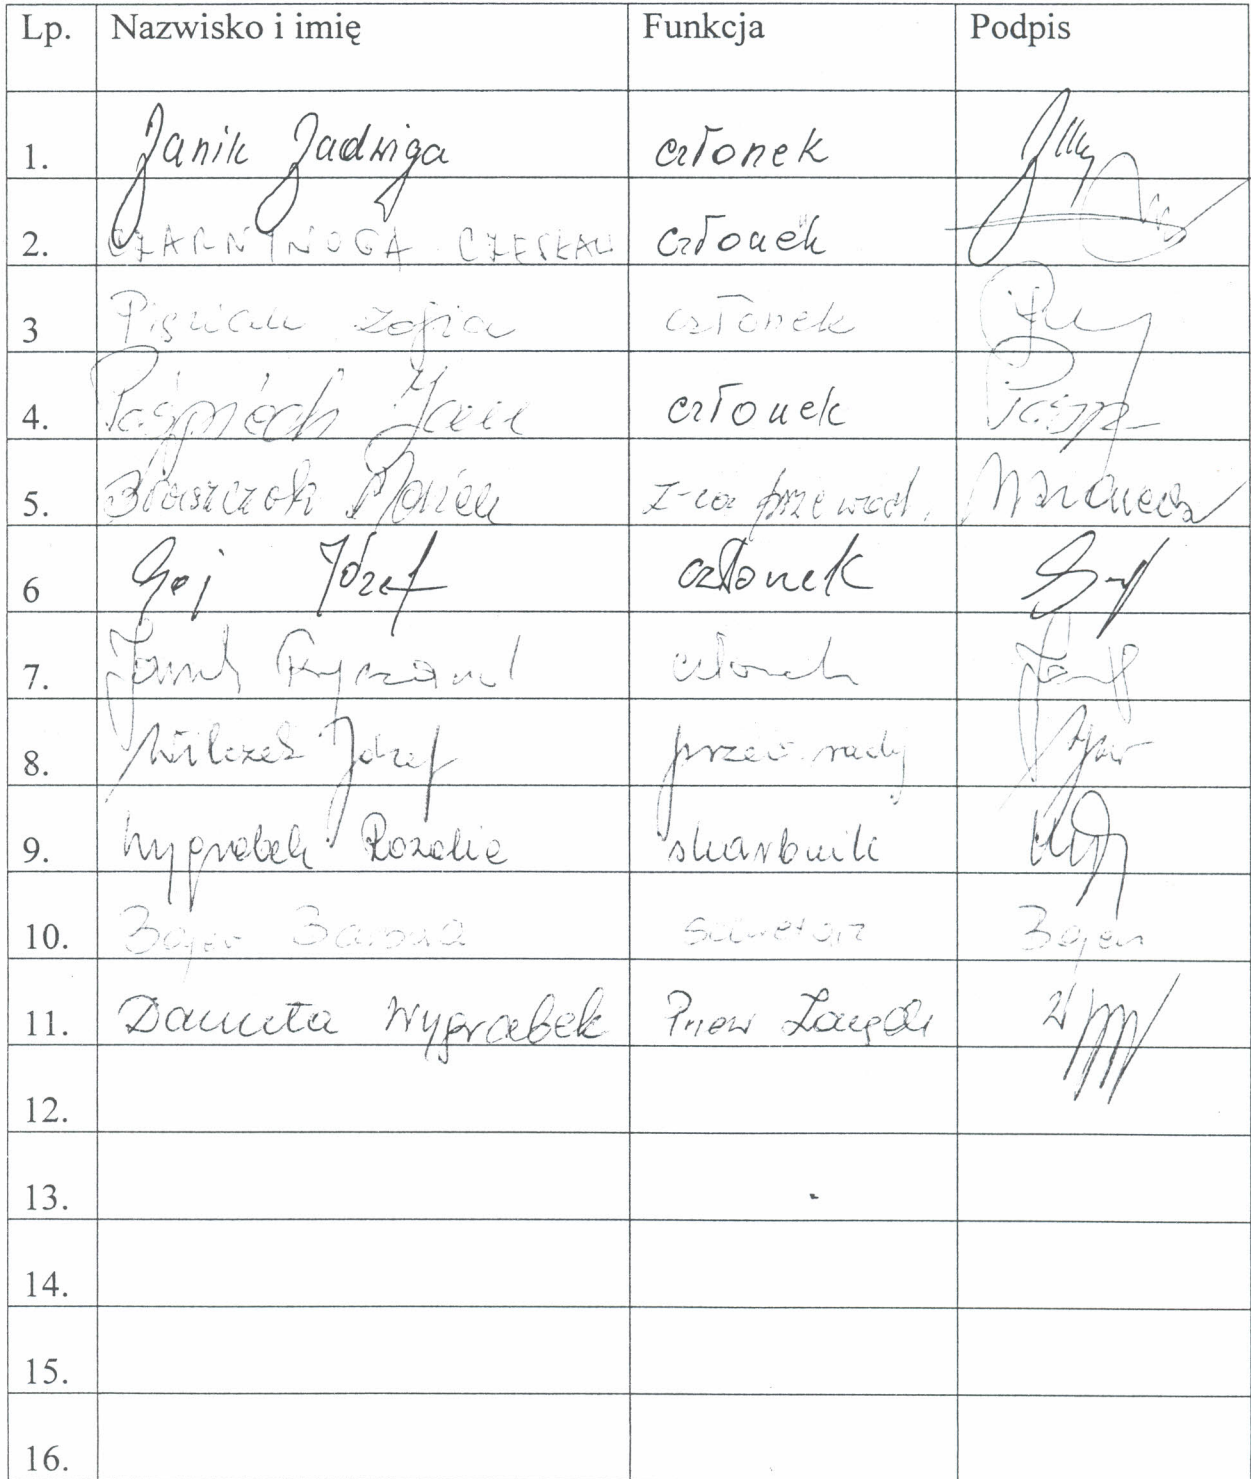 Lp. Nazwisko i imię Funkcja Podpis
1. Janik Jadwiga członek
2. CZARNYNOGA CZESŁAW członek
3 Zofia członek
4. Pośpiech Jan członek
5. Błaszczok Marian z-ca przewod.
6 Goj Józef członek
7. Janik Ryszard członek
8. Wilczek Józef przew. rady
9. Wygrabek Rozalia skarbnik
10. Bajer Barbara sekretarz Bajer
11. Danuta Wygrabek Przew Zarządu
12.
13.
14.
15.
16.